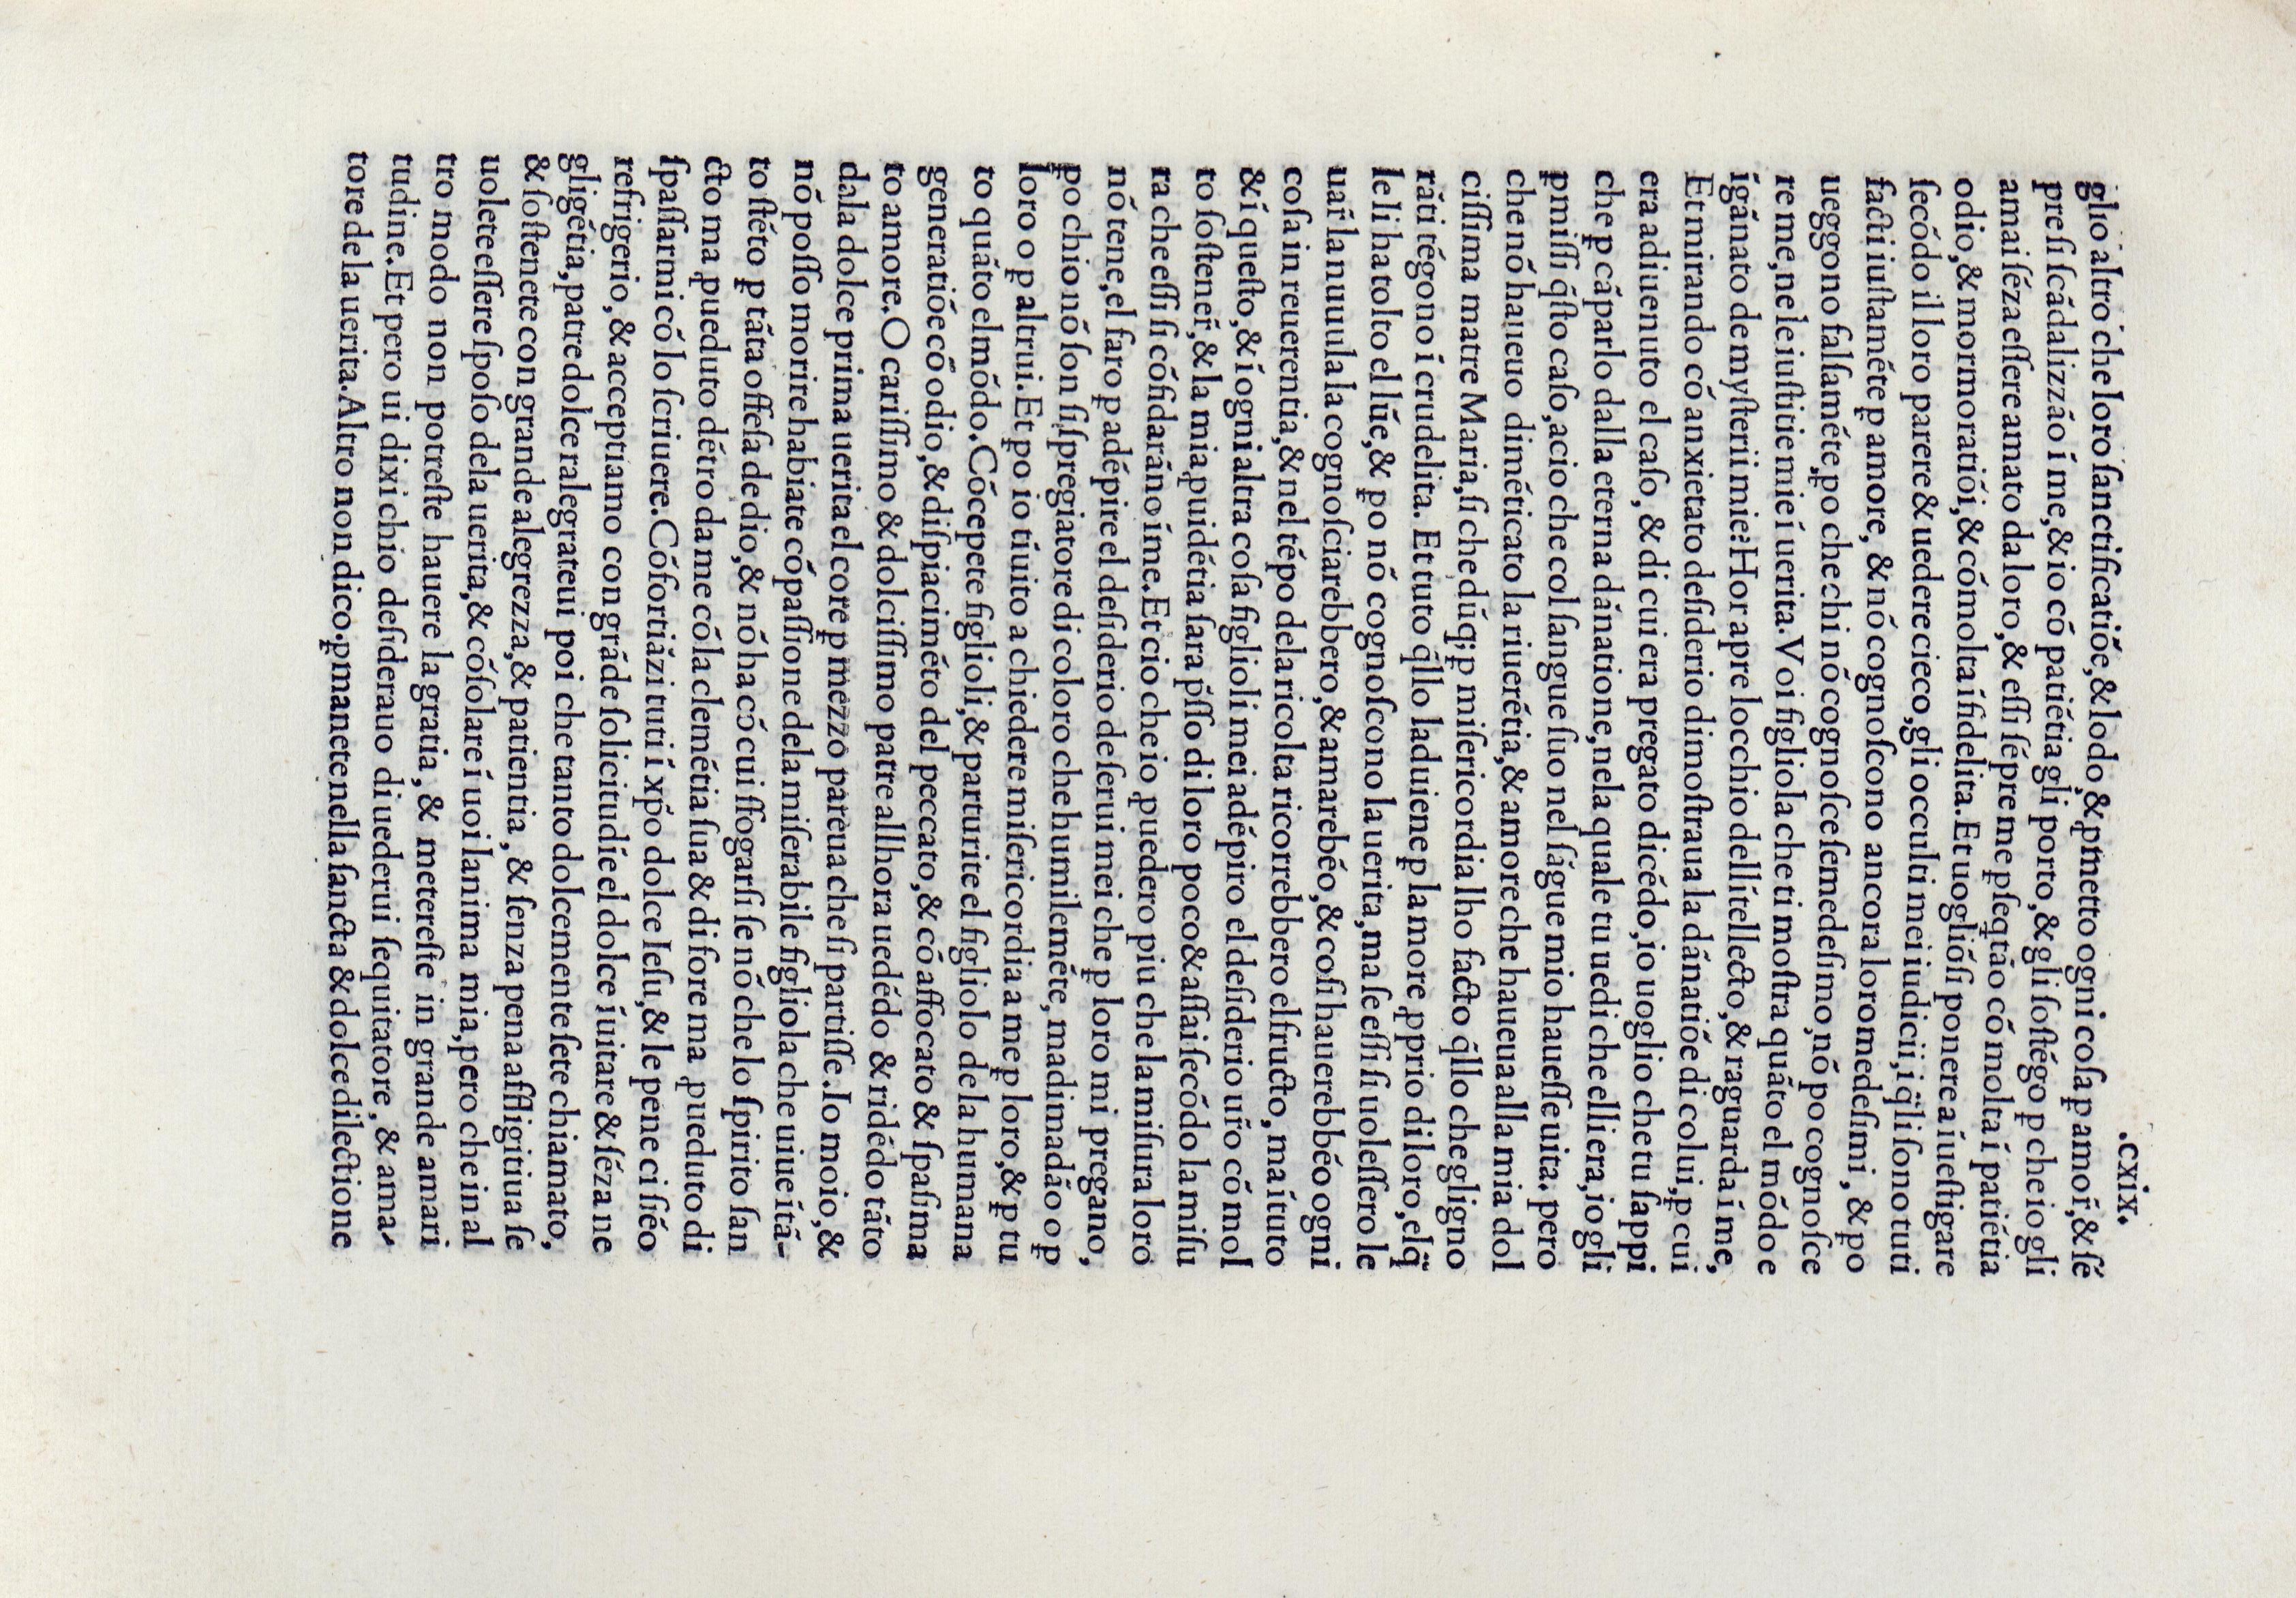 .CXIX.
glio altro i che loro ſanctificatióe,& lodo,& ꝓmetto ogni coſa ꝑ amoř,& ſé
pre ſi ſcádalizzáo í me,& io có patiétia gli porto,& gli ſoſtégo ꝑ che io gli
amai ſéza eſſere amato da loro,& eſſi ſépre me ꝑſeqtáo có molta í patiétia
odio,& mormoratiói,& có molta í fidelita. Et uogliόſi ponere a íueſtigare
ſecódo il loro parere & uedere cieco,gli occulti mei iudicii,i q̃li ſono tuti
facti iuſtaméte ꝑ amore, & nó cognoſcono ancora loro medeſimi , & ꝑo
ueggono falſaméte,ꝑo che chi nó cognoſce ſe medeſimo,nó po cognoſce
re me,ne le iuſtitie mie í uerita. Voi figliola che ti moſtra quáto el módo e
ígánato de myſterii mie? Hor apre locchio dellítellecto,& raguarda í me,
Et mirando có anxietato deſiderio dimoſtraua la dánatióe di colui,ꝑ cui
era adiuenuto el caſo , & di cui era pregato dicédo,io uoglio che tu ſappi
che ꝑ cáparlo dalla eterna dánatione,nela quale tu uedi che elli era,io gli
ꝑmiſſi q̃ſto caſo,acio che col ſangue ſuo nel ſágue mio haueſſe uita. pero
che nó haueuo diméticato la riuerétia,& amore che haueua alla mia dol
ciſſima matre Maria,ſi che dúq;ꝑ miſericordia lho facto q̃llo che gligno
ráti tégono í crudelita. Et tuto q̃llo laduiene ꝑ lamore ꝓprio di loro,elq̃
le li ha tolto el lúe,& ꝑo nó cognoſcono la uerita,ma ſe eſſi ſi uoleſſero le
uař la nuuula la cognoſciarebbero,& amarebéo,& coſi hauerebbéo ogni
coſa in reuerentia,& nel tépo dela ricolta ricorrebbero elfructo , ma í tuto
& í queſto,& í ogni altra coſa figlioli mei adépiro el deſiderio uřo có mol
to ſoſteneř,& la mia ꝓuidétia ſara p̃ſſo di loro poco & aſſai ſecódo la miſu
ra che eſſi ſi cófidaráno íme. Et cio che io ꝓuedero piu che la miſura loro
nó tene,el faro ꝑ adépire el deſiderio de ſerui mei che ꝑ loro mi pregano,
ꝑo chio nó ſon ſiſpregiatore di coloro che humileméte, madimadáo o ꝑ
loro o ꝑ altrui. Et ꝑo io tíuito a chiedere miſericordia a me ꝑ loro,& ꝑ tu
to quáto elmódo. Cócepete figlioli,& parturite el figliolo de la humana
generatióe có odio,& diſpiaciméto del peccato,& có affocato & ſpaſima
to amore. O cariſſimo & dolciſſimo patre allhora uedédo & ridédo táto
dala dolce prima uerita el core ꝑ mezzo pareua che ſi partiſſe. Io moio, &
nó poſſo morire habiate cópaſſione dela miſerabile figliola che uiue ítá-
to ſtéto ꝑ táta offeſa de dio,& nó ha có cui ſfogarſi ſe nó che lo ſpirito ſan
cto ma ꝓueduto détro da me cóla clemétia ſua & di fore ma ꝓueduto di
ſpaſſarmi có lo ſcriuere. Cófortiázi tuti í xp̃o dolce Ieſu,& le pene ci ſiéo
refrigerio , & acceptiamo con gráde ſolicitudíe el dolce íuitare & ſéza ne
gligétia,patre dolce ralegrateui poi che tanto dolcemente ſete chiamato,
& ſoſtenete con grande alegrezza,& patientia , & ſenza pena affligitiua ſe
uolete eſſere ſpoſo dela uerita,& cóſolare í uoi lanima mia,pero che in al
tro modo non potreſte hauere la gratia , & metereſte in grande amari
tudine. Et pero ui dixi chio deſiderauo di uederui ſequitatore , & ama-
tore de la uerita. Altro non dico.ꝑmanete nella ſancta & dolce dilectione